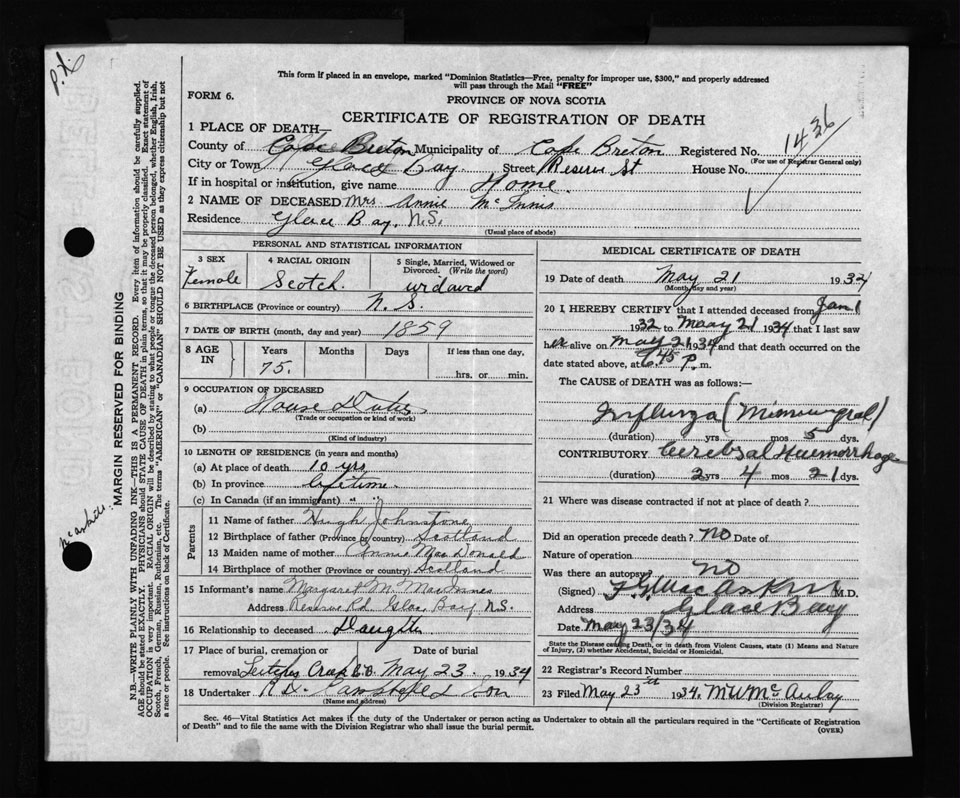 P.X.
This form if placed in an envelope, marked "Dominion Statistics—Free, penalty for improper use, $300," and properly addressed
will pass through the Mail "FREE"
FORM 6.
PROVINCE OF NOVA SCOTIA
CERTIFICATE OF REGISTRATION OF DEATH
1 PLACE OF DEATH—
County of Cape Breton Municipality of Cape Breton Registered No. 1426
(For use of Registrar General only)
City or Town Glace Bay Street Reserve St House No.
If in hospital or institution, give name Home
2 NAME OF DECEASED Mrs Annie McInnis
Residence Glace Bay, N.S.
(Usual place of abode)
PERSONAL AND STATISTICAL INFORMATION
3 SEX
Female
4 RACIAL ORIGIN
Scotch
5 Single, Married, Widowed or
Divorced. (Write the word)
widowed
6 BIRTHPLACE (Province or country) N.S.
7 DATE OF BIRTH (month, day and year) 1859
8 AGE
IN
Years
75.
Months
Days
If less than one day,
hrs. or min.
9 OCCUPATION OF DECEASED
(a) House Duties
(Trade or occupation or kind of work)
(b)
(Kind of industry)
10 LENGTH OF RESIDENCE (in years and months)
(a) At place of death 10 yrs
(b) In province lifetime
(c) In Canada (if an immigrant) " "
Parents
11 Name of father Hugh Johnstone
12 Birthplace of father (Province or country) Scotland
13 Maiden name of mother Annie MacDonald
14 Birthplace of mother (Province or country) Scotland
15 Informant's name Margaret M. MacInnes
Address Reserve Rd. Glace Bay N.S.
16 Relationship to deceased Daughter
17 Place of burial, cremation or
removal Leitches Creek C.B.
Date of burial
May 23. 1934
18 Undertaker & Son
(Name and address)
MEDICAL CERTIFICATE OF DEATH
19 Date of death May 21 1934
(Month, day and year)
20 I HEREBY CERTIFY that I attended deceased from Jan 1
1932 to May 21 1934 that I last saw
her alive on May 21 1934 and that death occurred on the
date stated above, at 6.45 P. m.
The CAUSE of DEATH was as follows:—
Influenza
(duration) yrs mos 5 dys.
CONTRIBUTORY Cerebral Haemorrhage
(duration) 2 yrs 4 mos 21 dys.
21 Where was disease contracted if not at place of death?
Did an operation precede death? NO Date of
Nature of operation
Was there an autopsy? NO
(Signed) M.D.
Address Glace Bay
Date May 23/34
State the Disease causing Death, or in death from Violent Causes, state (1) Means and Nature
of Injury, (2) whether Accidental, Suicidal or Homicidal.
22 Registrar's Record Number
23 Filed May 23rd 1934. M W McAulay
(Division Registrar)
Sec. 46—Vital Statistics Act makes it the duty of the Undertaker or person acting as Undertaker to obtain all the particulars required in the "Certificate of Registration
of Death" and to file the same with the Division Registrar who shall issue the burial permit.
(OVER)
MARGIN RESERVED FOR BINDING
N.B.—WRITE PLAINLY WITH UNFADING INK—THIS IS A PERMANENT RECORD. Every item of information should be carefully supplied.
AGE should be stated EXACTLY. PHYSICIANS should STATE CAUSE OF DEATH in plain terms, so that it may be properly classified. Exact statement of
OCCUPATION is very important. RACIAL ORIGIN will be described by stating to what people or tongue the deceased person belonged, whether English, Irish,
Scotch, French, German, Russian, Ruthenian, etc. The terms "AMERICAN" or "CANADIAN" SHOULD NOT BE USED as they express citizenship but not
a race or people. See instructions on back of Certificate.